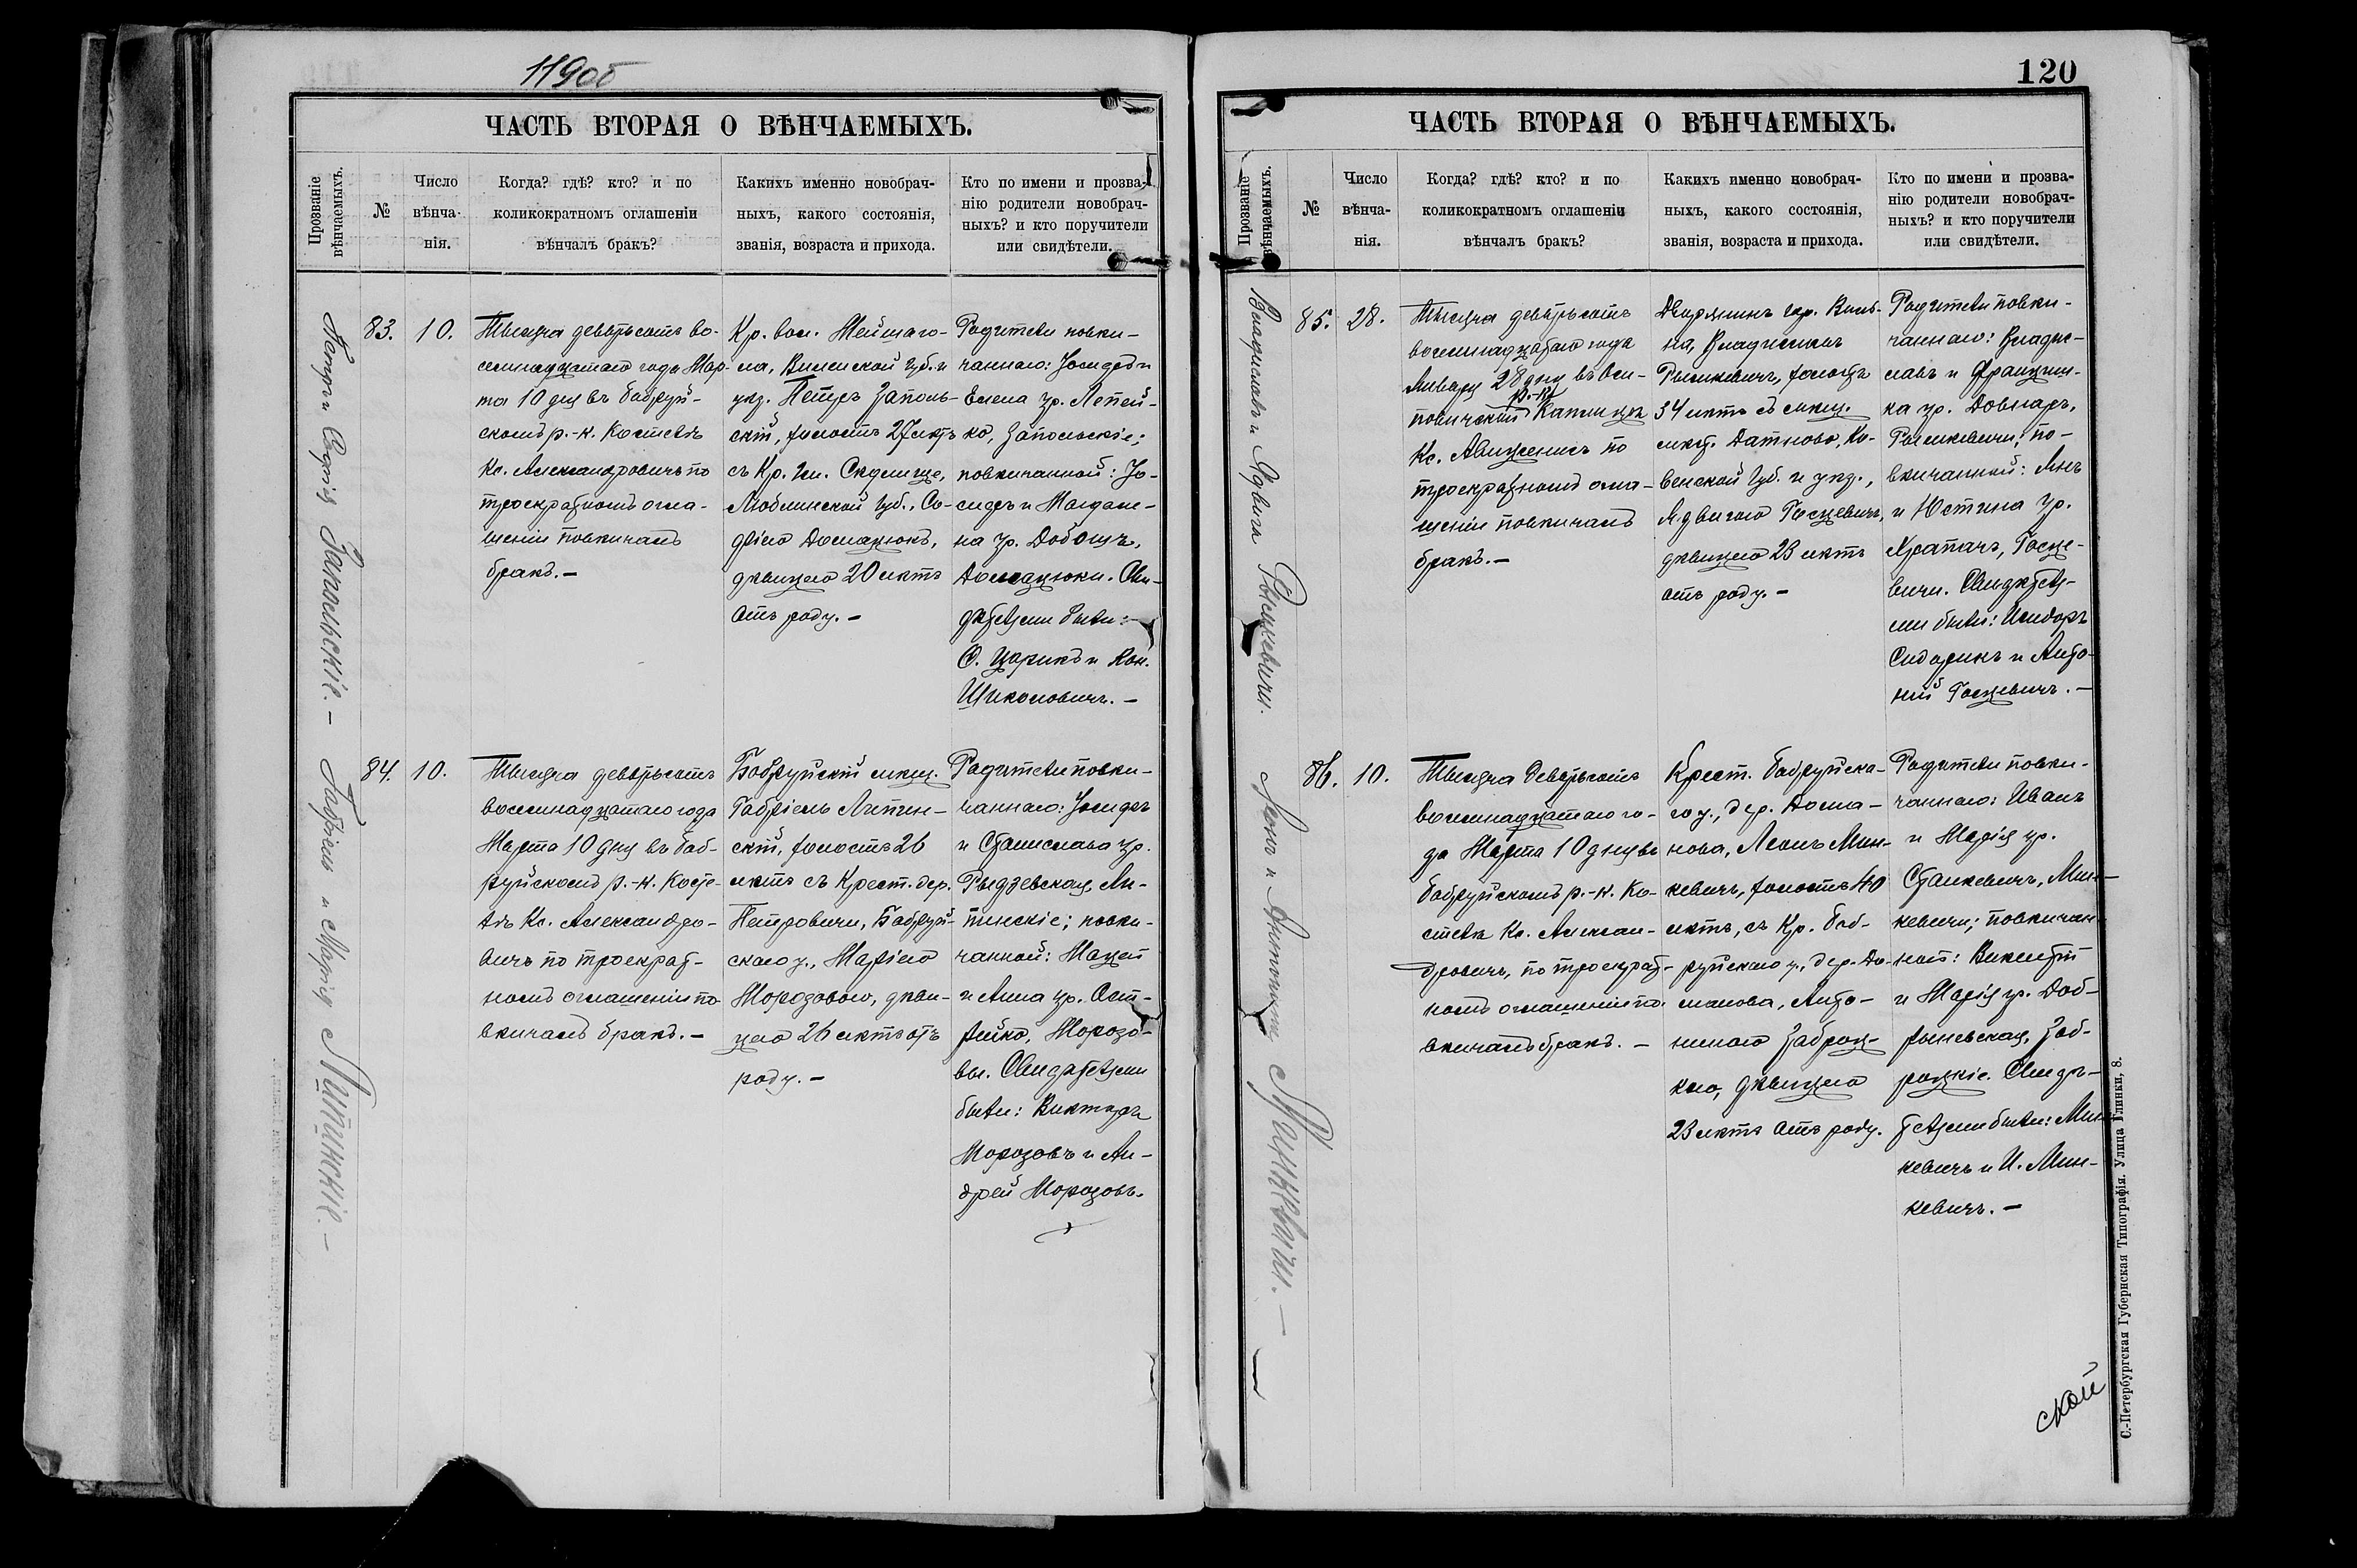 119об
ЧАСТЬ ВТОРАЯ О ВѢНЧАЕМЫХЪ.
Прозваніе
вѣнчаемыхъ.
№
Число
вѣнча-
нія.
Когда? гдѣ? кто? и по
коликократномъ оглашеніи
вѣнчалъ бракъ?
Какихъ именно новобрач-
ныхъ, какого состоянія,
званія, возраста и прихода.
Кто по имени и прозва-
нію родители новобрач-
ныхъ? и кто поручители
или свидѣтели.
Запольскіе. –
83.
10.
Тысяча девятьсотъ во-
семнадцатаго года Мар-
та 10 дня въ Бобруй-
скомъ р.-к. Костелѣ
Кс. Александровичъ по
троекратномъ огла-
шеніи повѣнчалъ
бракъ. –
Кр. вол. Мейшаго-
ла, Виленской губ. и
уѣз. Петръ Заполь-
скій, холостъ 27 лѣтъ
съ Кр. гм.
Люблинской губ., Со-
фіею Домацюкъ,
дѣвицею 20 лѣтъ
отъ роду. –
Родители повѣн-
чаннаго: Іосифъ и
Елена ур. Лепей-
ко, Запольскіе;
повѣнчанной: Іо-
сифъ и Магдале-
на ур. Добошъ,
Домацюки. Сви-
дѣтелями были:
О. Царикъ и Кон.
Шиколовичъ. –
Габріель и Марія Липинскіе. –
84.
10.
Тысяча девятьсотъ
восемнадцатаго года
Марта 10 дня въ Боб-
руйскомъ р.-к. Косте-
лѣ Кс. Александро-
вичъ по троекрат-
номъ оглашеніи по-
вѣнчалъ бракъ. –
Бобруйскій мѣщ.
Габріель Липин-
скій, холостъ 26
лѣтъ съ Крест. дер.
Петровичи, Бобруй-
скаго у., Маріею
Морозовою, дѣви-
цею 26 лѣтъ отъ
роду. –
Родители повѣн-
чаннаго: Іосифъ
и Станислава ур.
Рыдзевская, Ли-
пинскіе; повѣн-
чанной: Мацей
и Анна ур. Аст-
рейко, Морозо-
вы. Свидѣтелями
были: Викторъ
Морозовъ и Ан-
дрей Морозовъ.
120
ЧАСТЬ ВТОРАЯ О ВѢНЧАЕМЫХЪ.
Прозваніе
вѣнчаемыхъ.
№
Число
вѣнча-
нія.
Когда? гдѣ? кто? и по
коликократномъ оглашеніи
вѣнчалъ бракъ?
Какихъ именно новобрач-
ныхъ, какого состоянія,
званія, возраста и прихода.
Кто по имени и прозва-
нію родители новобрач-
ныхъ? и кто поручители
или свидѣтели.
Владиславъ и Ядвига Рымкевичи.
85.
28.
Тысяча девятьсотъ
восемнадцатаго года
Января 28 дня въ Оси-
р.-к.
повичской Каплицѣ
Кс. Авиженисъ по
троекратномъ огла-
шеніи повѣнчалъ
бракъ. –
Дворянинъ гор. Виль-
на, Владиславъ
Рымкевичъ, холостъ
34 лѣтъ съ мѣщ.
мѣст. Датново, Ко-
венской губ. и уѣз.,
Ядвигою Госцевичъ,
дѣвицею 23 лѣтъ
отъ роду. –
Родители повѣн-
чаннаго: Владис-
лавъ и Францишка
ка ур. Довнаръ,
Рымкевичи; по-
вѣнчанной: Янъ
и Юстина ур.
Храпачъ, Госце-
вичи. Свидѣтеля-
ми были: Исидоръ
Сидорикъ и Анто-
ній Госцевичъ. –
Леонъ и Антонина Минкевичи. –
86.
10.
Тысяча девятьсотъ
восемнадцатаго го-
да Марта 10 дня въ
Бобруйскомъ р.-к. Ко-
стелѣ Кс. Алексан-
дровичъ, по троекрат-
номъ оглашеніи по-
вѣнчалъ бракъ. –
Крест. Бобруйска-
го у., дер. Дома-
нова, Леонъ Мин-
кевичъ, холостъ 40
лѣтъ, съ Кр. Боб-
руйскаго у., дер. До-
манова, Анто-
ниною Заброц-
кою, дѣвицею
23 лѣтъ отъ роду.
Родители повѣн-
чаннаго: Иванъ
и Марія ур.
Станкевичъ, Мин-
кевичи; повѣнчан-
ной: Викентій
и Марія ур. Доб-
рыневская, Заб-
роцкіе. Свидѣ-
телями были: Мин-
кевичъ и И. Мин-
кевичъ. –
ской
С.-Петербургская Губернская Типографія. Улица Глинки, 8.